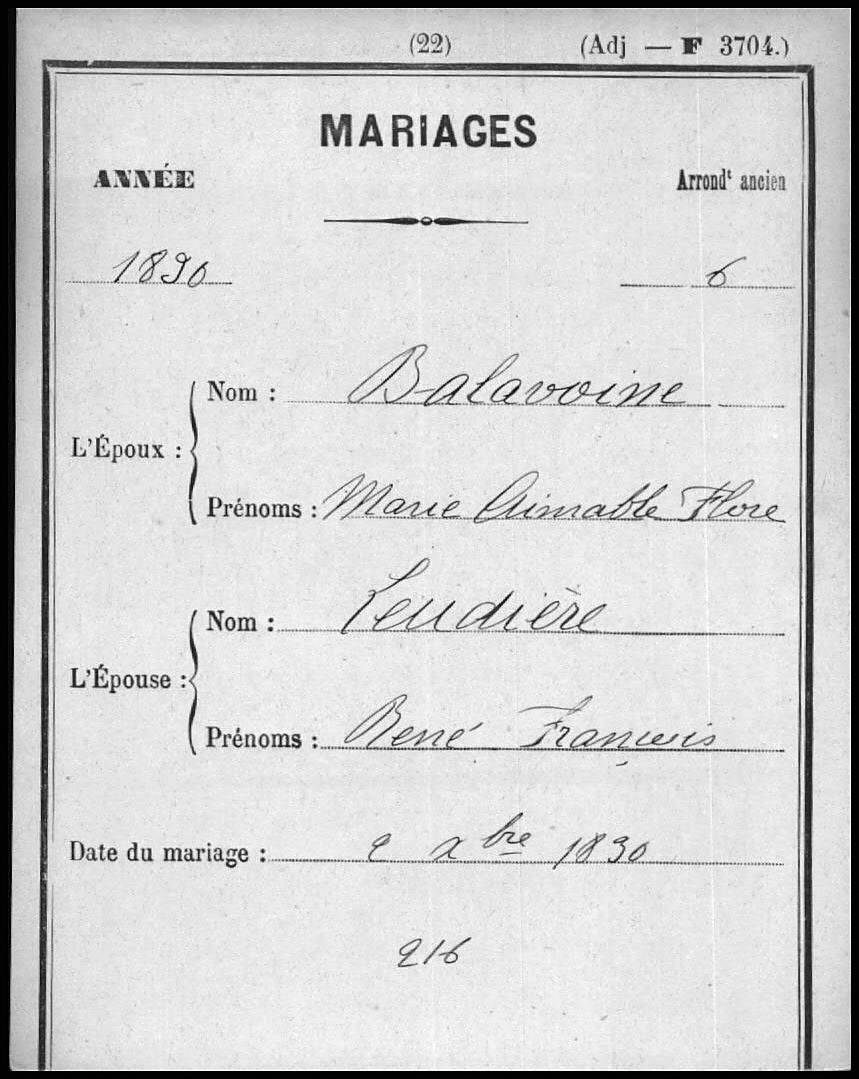 (22) (Adj — F 3704.)
MARIAGES
ANNÉE Arrondt ancien
1830 6
Nom : Balavoine
L'Époux :
Prénoms : Marie Aimable Flore
Nom : Leudière
L'Épouse :
Prénoms : René François
Date du mariage : 2 xbre 1830
216